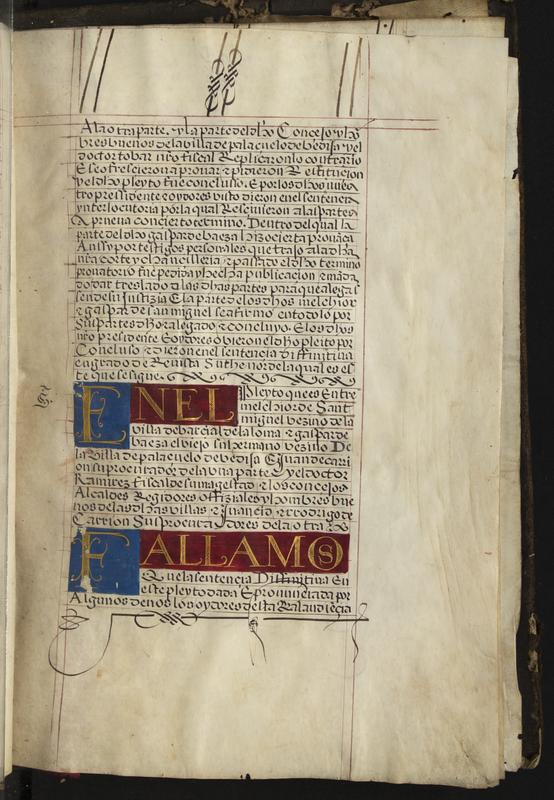 Ala otra parte. y la parte del dho Concejo y ho
bres buenos de la villa de palaçuelo de bedisa y el
doctor tobar nro fiscal Replicaron lo contrario
E se ofrescieron a provar e pidieron Restitucion
y el dho pleyto fue concluso. E por los dhos nues
tro pressidente e oydores visto dieron en el sentencia
ynterlocutoria por la qual Rescivieron a las partes
A prueva con cierto termino. Dentro del qual la
parte del dho gaspar de baeza hizo cierta provança
Anssy por testigos personales que trajo a la dha
nra corte y chancilleria e passado el dho termino
provatorio fue pedida y hecha publicacion e manda
do dar treslado a las dhas partes para que alegas
sen de su Justizia E la parte de los dhos melchior
e gaspar de san miguel se afirmo en todo lo por
sus partes dho e alegado e concluyo. E los dhos
nro presidente E oydores obieron el dho pleito por
Concluso e dieron en el sentencia diffinitiva
en grado de Revista Su thenor de la qual es es
te que se sigue.
EN EL Pleyto que es Entre
melchior de Sant
miguel vezino de la
villa de barcial de la loma e gaspar de
baeza el viejo su hermano vezino De
la Villa de palaçuelo de vedisa E Juan de carri
on su procurador de la una parte. Y el doctor
Ramirez fiscal de su magestad e los concejos
Alcaldes Regidores offiziales y hombres bue
nos de las dhas villas e Juan e Rodrigo de
Carrion Sus procuradores de la otra
FALLAMOS
Que la sentencia Diffinitiva En
este pleyto dada E pronunciada por
Algunos de nos los oydores desta Real audiençia